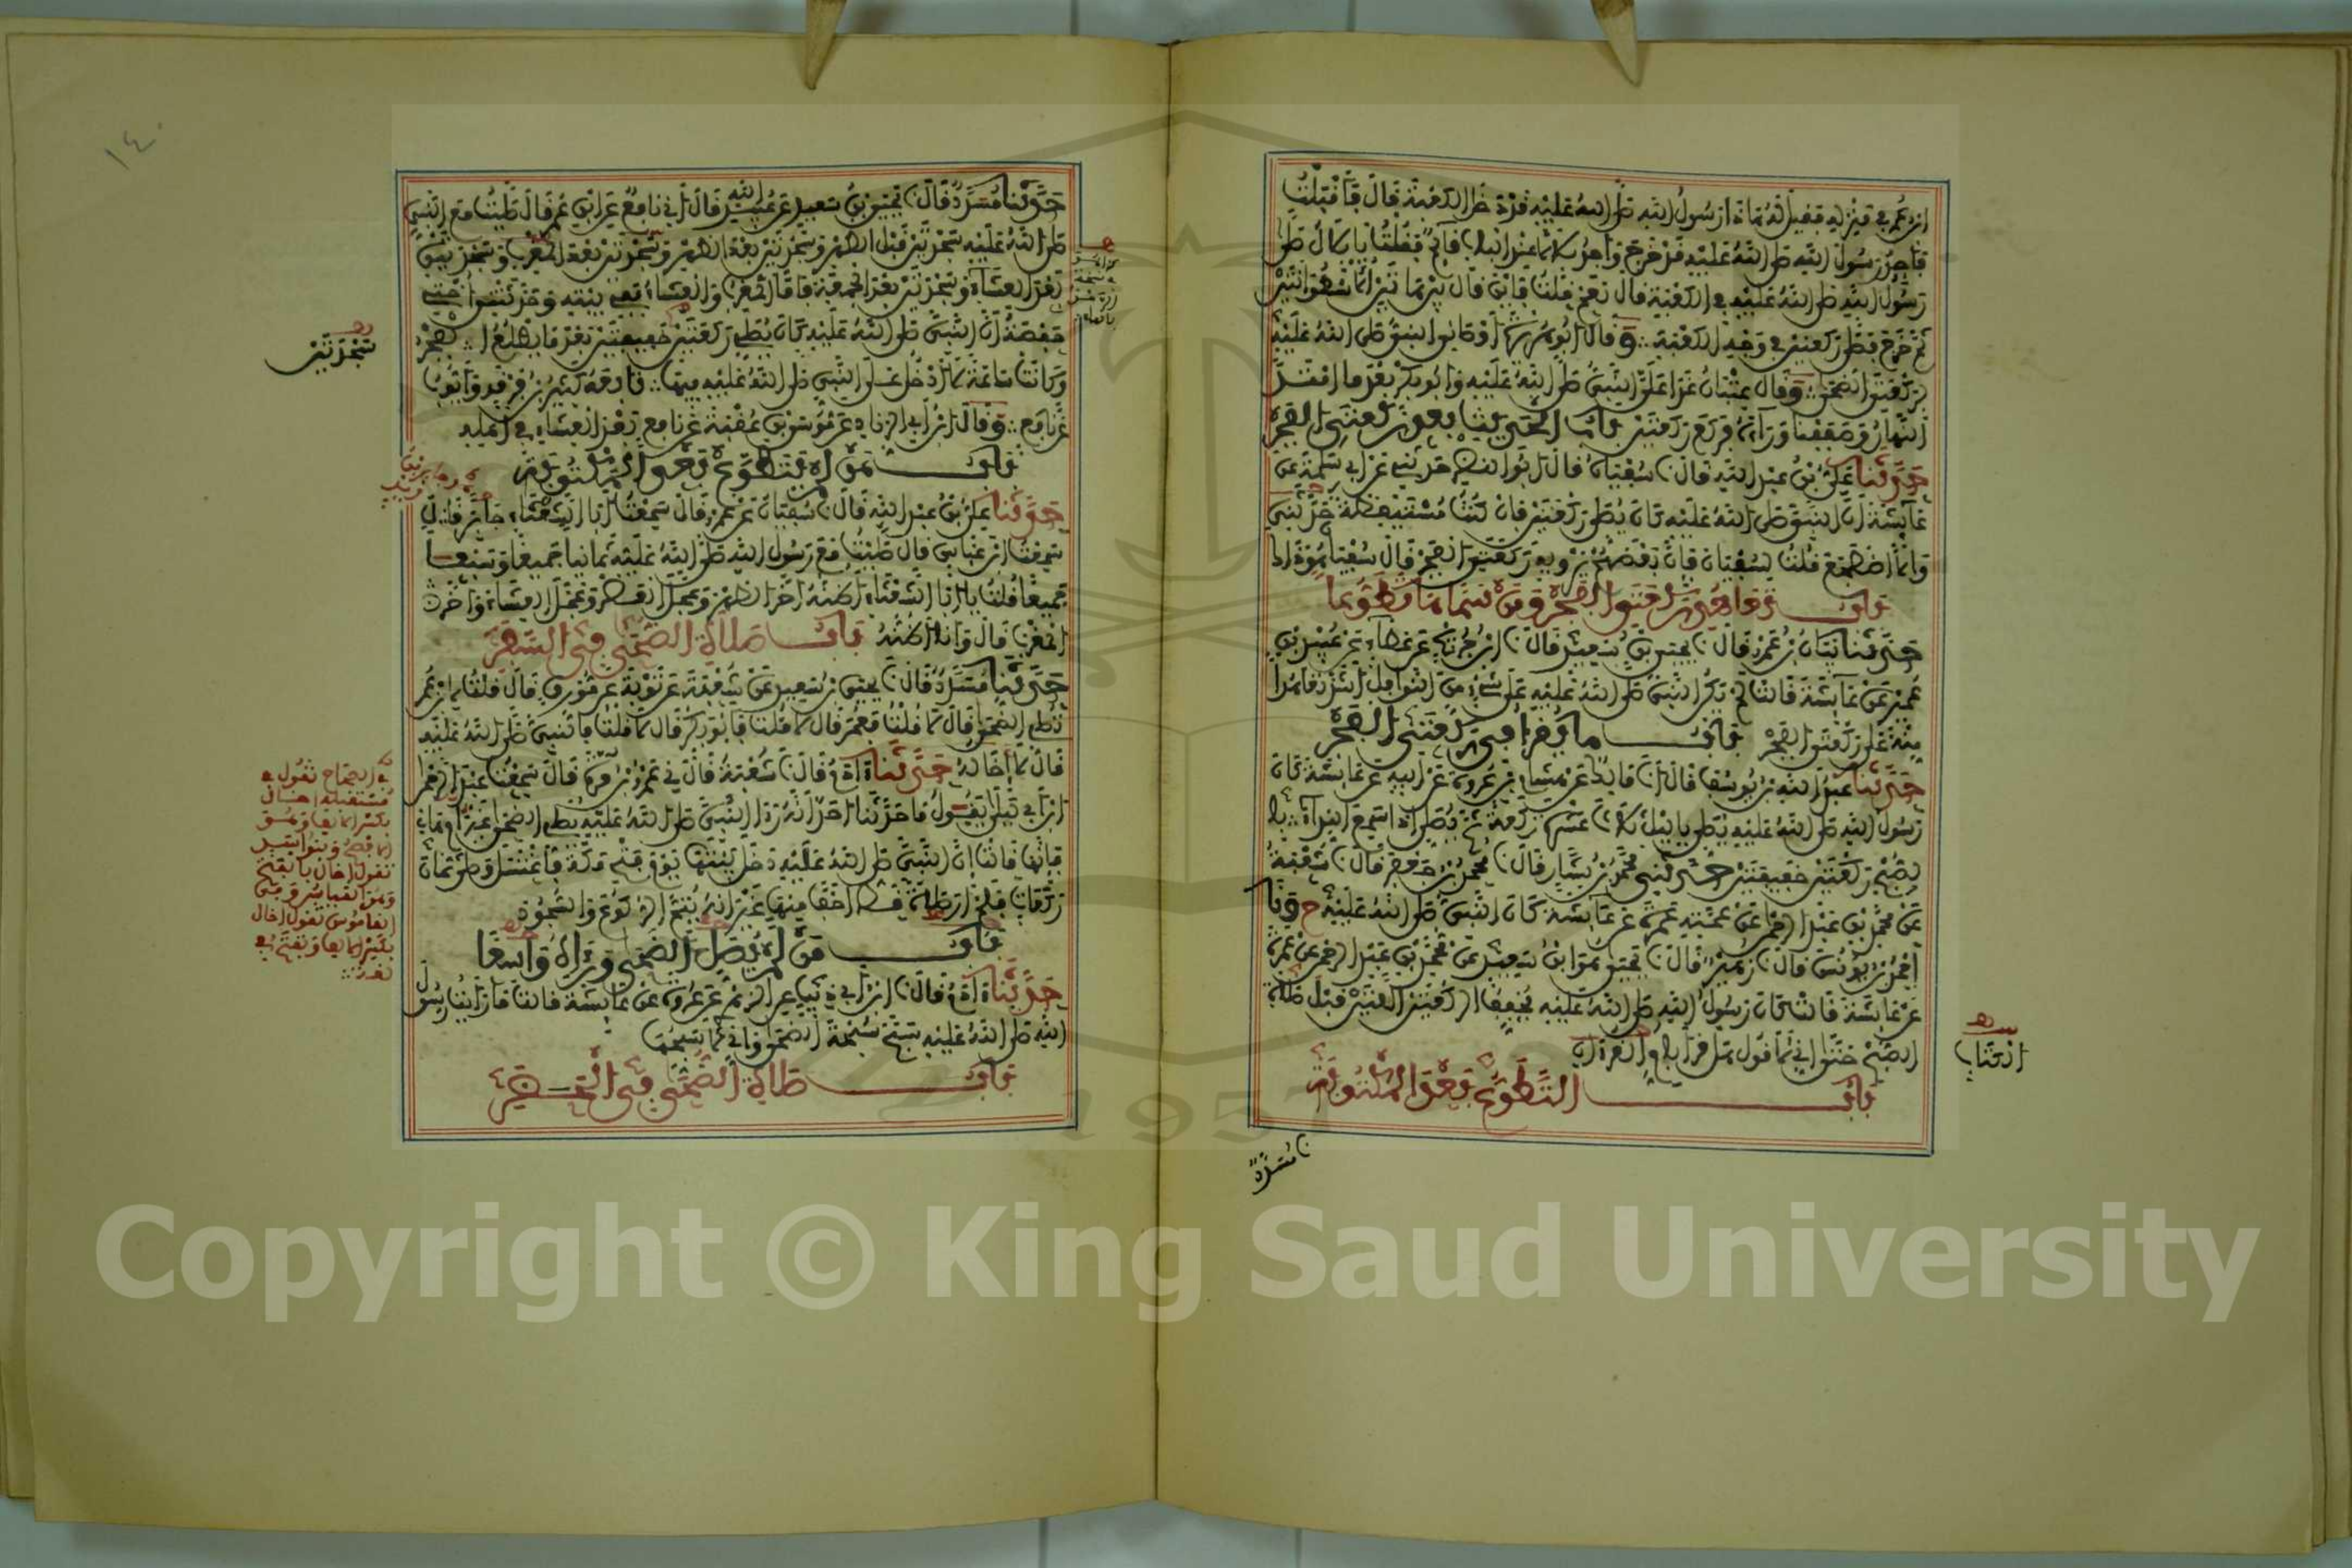 ابن عمر في منزله فقيل له هذا رسول الله صلى الله عليه قد دخل الكعبة قال فأقبلت
فأجد رسول الله صلى الله عليه قد خرج وأجد بلالا عند الباب قائما فقلت يا بلال صلى
رسول الله صلى الله عليه في الكعبة قال نعم قلت فأين قال بين هاتين الأسطوانتين
ثم خرج فصلى ركعتين في وجه الكعبة وقال أبو هريرة أوصاني النبي صلى الله عليه
بركعتي الضحى وقال عتبان غدا علي النبي صلى الله عليه وأبو بكر بعد ما امتد
النهار وصففنا وراءه فركع ركعتين باب الحديث بعد ركعتي الفجر
حدثنا علي بن عبد الله قال نا سفيان قال أبو النضر حدثني عن أبي سلمة عن
عائشة أن النبي صلى الله عليه كان يصلي ركعتين فإن كنت مستيقظة حدثني
وإلا اضطجع قلت لسفيان فإن بعضهم يرويه ركعتي الفجر قال سفيان هو ذاك
باب تعاهد ركعتي الفجر ومن سماها تطوعا
حدثنا بيان بن عمرو قال نا يحيى بن سعيد قال نا ابن جريج عن عطاء عن عبيد بن
عمير عن عائشة قالت لم يكن النبي صلى الله عليه على شيء من النوافل أشد تعاهدا
منه على ركعتي الفجر باب ما يقرأ في ركعتي الفجر
حدثنا عبد الله بن يوسف قال أنا مالك عن هشام بن عروة عن أبيه عن عائشة كان
رسول الله صلى الله عليه يصلي بالليل ثلاث عشرة ركعة ثم يصلي إذا سمع النداء بالـ
ـصبح ركعتين خفيفتين حدثني محمد بن بشار قال نا محمد بن جعفر قال نا شعبة
عن محمد بن عبد الرحمن عن عمته عمرة عن عائشة كان النبي صلى الله عليه ح ونا
أحمد بن يونس قال نا زهير قال نا يحيى هو ابن سعيد عن محمد بن عبد الرحمن عن عمرة
عن عائشة قالت كان رسول الله صلى الله عليه يخفف الركعتين اللتين قبل صلاة
الصبح حتى إني لأقول هل قرأ بأم القرآن
الكتاب
باب التطوع بعد المكتوبة
نا مسدد
١٤٠
حدثنا مسدد قال نا يحيى بن سعيد عن عبيد الله قال أني نافع عن ابن عمر قال صليت مع النبي
صلى الله عليه سجدتين قبل الظهر وسجدتين بعد الظهر وسجدتين بعد المغرب وسجدتين
بعد العشاء وسجدتين بعد الجمعة فأما المغرب والعشاء ففي بيته وحدثتني أختي
حفصة أن النبي صلى الله عليه كان يصلي ركعتين خفيفتين بعد ما يطلع الفجر
سجدتين
وكانت ساعة لا أدخل على النبي صلى الله عليه فيها تابعه كثير بن فرقد وأيوب
عن نافع وقال ابن أبي الزناد عن موسى بن عقبة عن نافع بعد العشاء في أهله
باب من لم يتطوع بعد المكتوبة
حدثنا علي بن عبد الله قال نا سفيان عن عمرو قال سمعت أبا الشعثاء جابرا قال
سمعت ابن عباس قال صليت مع رسول الله صلى الله عليه ثمانيا جميعا وسبعا
جميعا قلت يا أبا الشعثاء أظنه أخر الظهر وعجل العصر وعجل العشاء وأخر
المغرب قال وأنا أظنه باب صلاة الضحى في السفر
حدثنا مسدد قال نا يحيى بن سعيد عن شعبة عن توبة عن مورق قال قلت لابن عمر
تصلي الضحى قال لا قلت فعمر قال لا قلت فأبو بكر قال لا قلت فالنبي صلى الله عليه
قال لا إخاله حدثنا آدم قال نا شعبة قال ني عمرو بن مرة قال سمعت عبد الرحمن
ابن أبي ليلى يقول ما حدثنا أحد أنه رأى النبي صلى الله عليه يصلي الضحى غير أم هانئ
فإنها قالت إن النبي صلى الله عليه دخل بيتها يوم فتح مكة فاغتسل وصلى ثمان
ركعات فلم أر صلاة قط أخف منها غير أنه يتم الركوع والسجود
في الصحاح تقول في
مستقبله إخال
بكسر الألف وهو
الأفصح وبنو أسد
تقول أخال بالفتح
وهو القياس وفي
القاموس تقول إخال
بكسر الألف وتفتح في
لغية
باب من لم يصل الضحى ورآه واسعا
حدثنا آدم قال نا ابن أبي ذئب عن الزهري عن عروة عن عائشة قالت ما رأيت رسول
الله صلى الله عليه سبح سبحة الضحى وإني لأسبحها
باب صلاة الضحى في الحضر
Copyright © King Saud University
1957